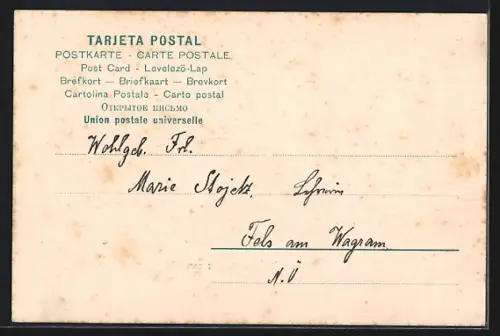 TARJETA POSTAL
POSTKARTE - CARTE POSTALE.
Post Card - Levelező-Lap
Brèfkort — Briefkaart — Brevkort
Cartolina Postale - Carto postal
ОТКРЫТОЕ ПИСЬМО
Union postale universelle
Wohlgeb. Frl.
Marie
Fels am Wagram,
N.Ö